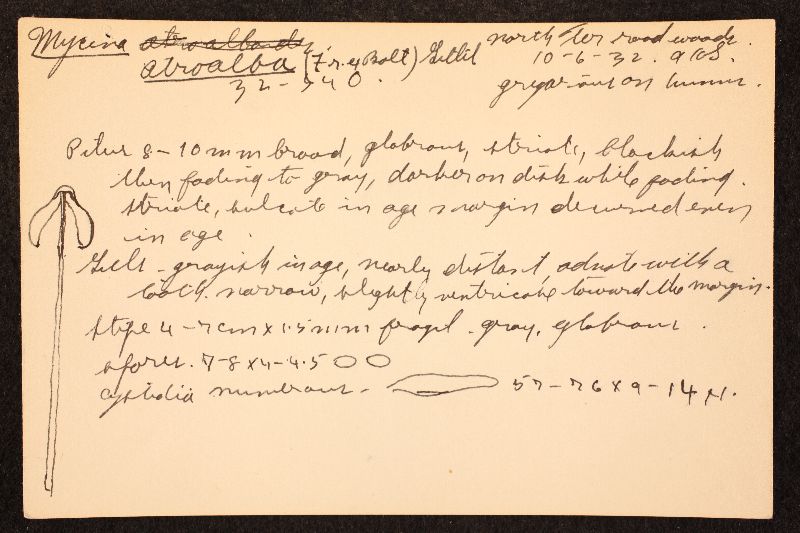 Mycena atroalboides
atroalba (Fr. ex Bolt) Gillet
32-540
north Tor road woods.
10-6-32.
gregarious on humus.
Pileus 8-10 mm broad, glabrous, striate, blackish
then fading to gray, darker on disk while fading.
striate, sulcate in age margin decurved even
in age.
Gills - grayish in age, nearly distant, adnate with a
tooth. narrow, slightly ventricose toward the margin.
stipe 4-7cm x 1.5mm fragil. gray, glabrous.
spores. 7-8 x 4-4.5
cystidia numerous - 57-76 x 9-14 µ.